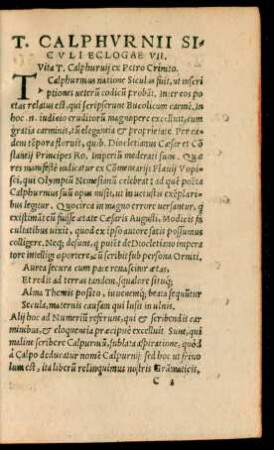 T. CALPHVRNII SI-
CVLI ECLOGAE VII.
Vita T. Calphurnij ex Petro Crinito.
T. Calphurnius natione Siculus fuit, ut inscri
ptiones ueterũ codicũ probãt. In ter eos po
etas relatus est, qui scripserunt Bucolicum carmẽ. In
hoc .n. iudicio eruditorũ magnopere excelluit, cum
gratia carminis, tũ elegantia & proprietate. Per ea
dem tẽpora floruit, quib. Diocletianus Cæsar et Co
stantij Principes Ro. Imperiũ moderati sunt. Quæ
res manifestè indicatur ex Cõmentarijs Flauij Vopi
sci, qui Olympiũ Nemesianũ celebrat: ad quẽ poëta
Calphurnius suũ opus misit, ut in uetustis exẽplari
bus legitur. Quocirca in magno errore uersantur, q
existimãt eũ fuisse ætate Cæsaris Augusti. Modicis fa
cultatibus uixit, quod ex ipso autore satis possumus
colligere. Neq; desunt, q putẽt de Diocletiano impera
tore intelligi oportere, cũ scribit sub persona Orniti,
Aurea secura cum pace renascitur ætas,
Et redit ad terras tandem, squalore situq;
Alma Themis posito, iuuenemq; beata sequũtur
Secula, maternis causam qui lusit in ulnis.
Alij hoc ad Numeriũ referunt, qui & scribendis car
minibus, & eloquẽtia præcipuè excelluit. Sunt, qui
malint scribere Calpurniũ, sublata aspiratione, quòd
à Calpo deducatur nomẽ Calpurnij: sed hoc ut friuo
lum est, ita liberũ relinquimus nostris Grãmaticis.
C